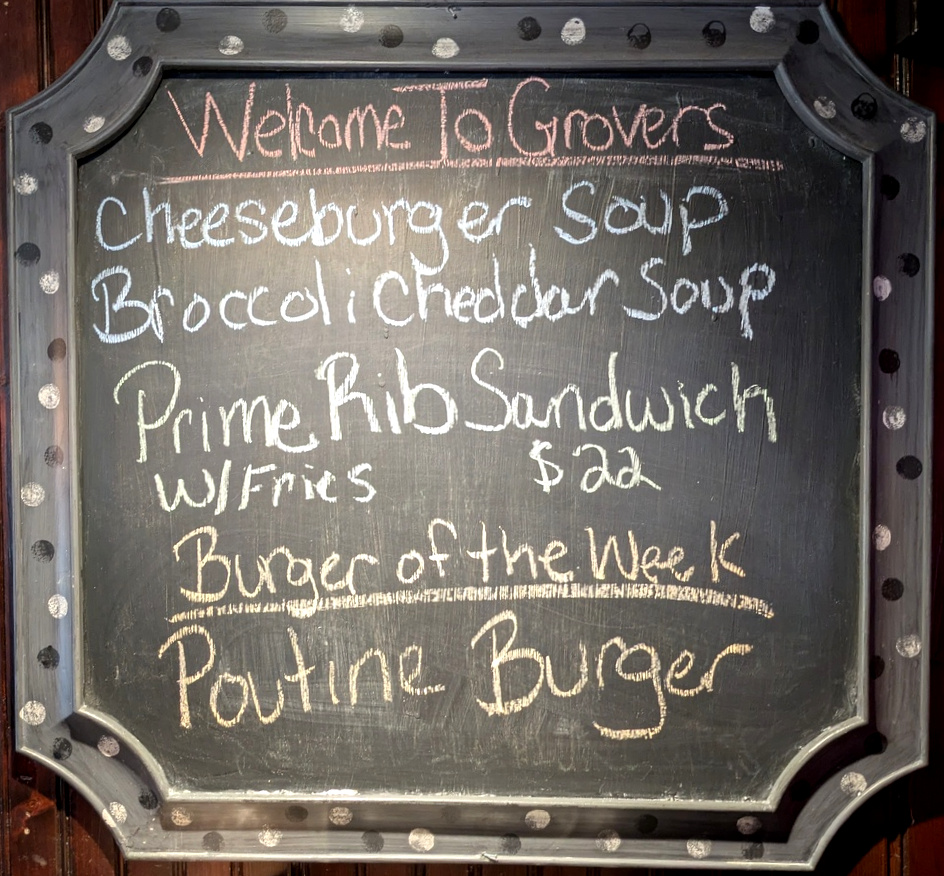 Welcome To Grovers
Cheeseburger Soup
Broccoli Cheddar Soup
Prime Rib Sandwich
w/Fries $22
Burger of the Week
Poutine Burger